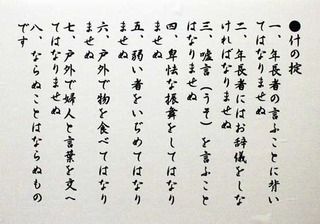 ●什の掟
一、年長者の言ふことに背い
てはなりませぬ
二、年長者にはお辞儀をしな
ければなりませぬ
三、嘘言(うそ)を言ふこと
はなりませぬ
四、卑怯な振舞をしてはなり
ませぬ
五、弱い者をいぢめてはなり
ませぬ
六、戸外で物を食べてはなり
ませぬ
七、戸外で婦人と言葉を交へ
てはなりませぬ
八、ならぬことはならぬもの
です